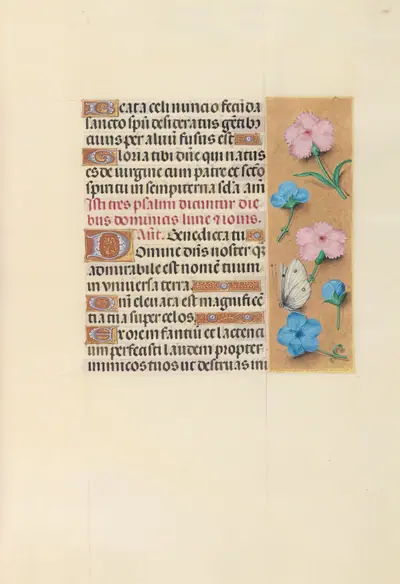 Beata celi nuncio fecūda
sancto spū desideratus gētibꝰ
cuius per aluū fusus est
Gloria tibi dñe qui natus
es de uirgine cum patre et scō
spiritu in sempiterna scla am̄
Isti tres psalmi dicuntur die
bus dominicis lune ⁊ iouis.
An̄t. Benedicta tu
Domine dn̄s noster q̄
admirabile est nomē tuum
in vniuersa terra
Qm̄ eleuata est magnificē
tia tua super celos
Ex ore infantiū et lactenti
um perfecisti laudem propter
inimicos tuos ut destruas ini